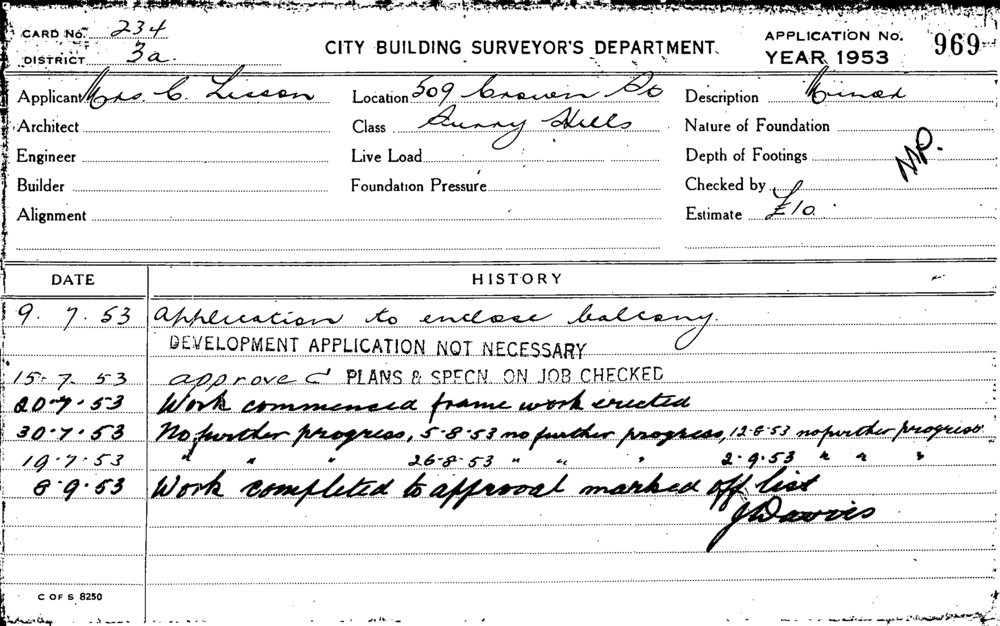 CARD No. 234
DISTRICT 3a.
CITY BUILDING SURVEYOR'S DEPARTMENT.
APPLICATION No. 969
YEAR 1953
Applicant Mrs. C. Lisson Location 309 Crown St Description Minor
Architect Class Surry Hills Nature of Foundation
Engineer Live Load Depth of Footings
MP.
Builder Foundation Pressure Checked by
Alignment Estimate £10.
DATE HISTORY
9. 7. 53 Application to enclose balcony.
DEVELOPMENT APPLICATION NOT NECESSARY
15. 7. 53 approved PLANS & SPECN. ON JOB CHECKED
20.7.53 Work commenced frame work erected
30.7.53 No further progress, 5-8-53 no further progress, 12-8-53 no further progress
19.7.53 " " " 26-8-53 " " " 2-9-53 " " "
8-9-53 Work completed to approval marked off list
J Davvis
C OF S 8250